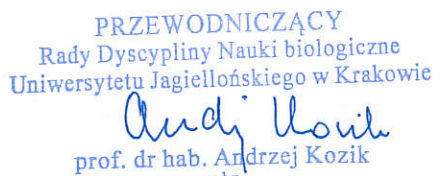 PRZEWODNICZĄCY
Rady Dyscypliny Nauki biologiczne
Uniwersytetu Jagiellońskiego w Krakowie
prof. dr hab. Andrzej Kozik